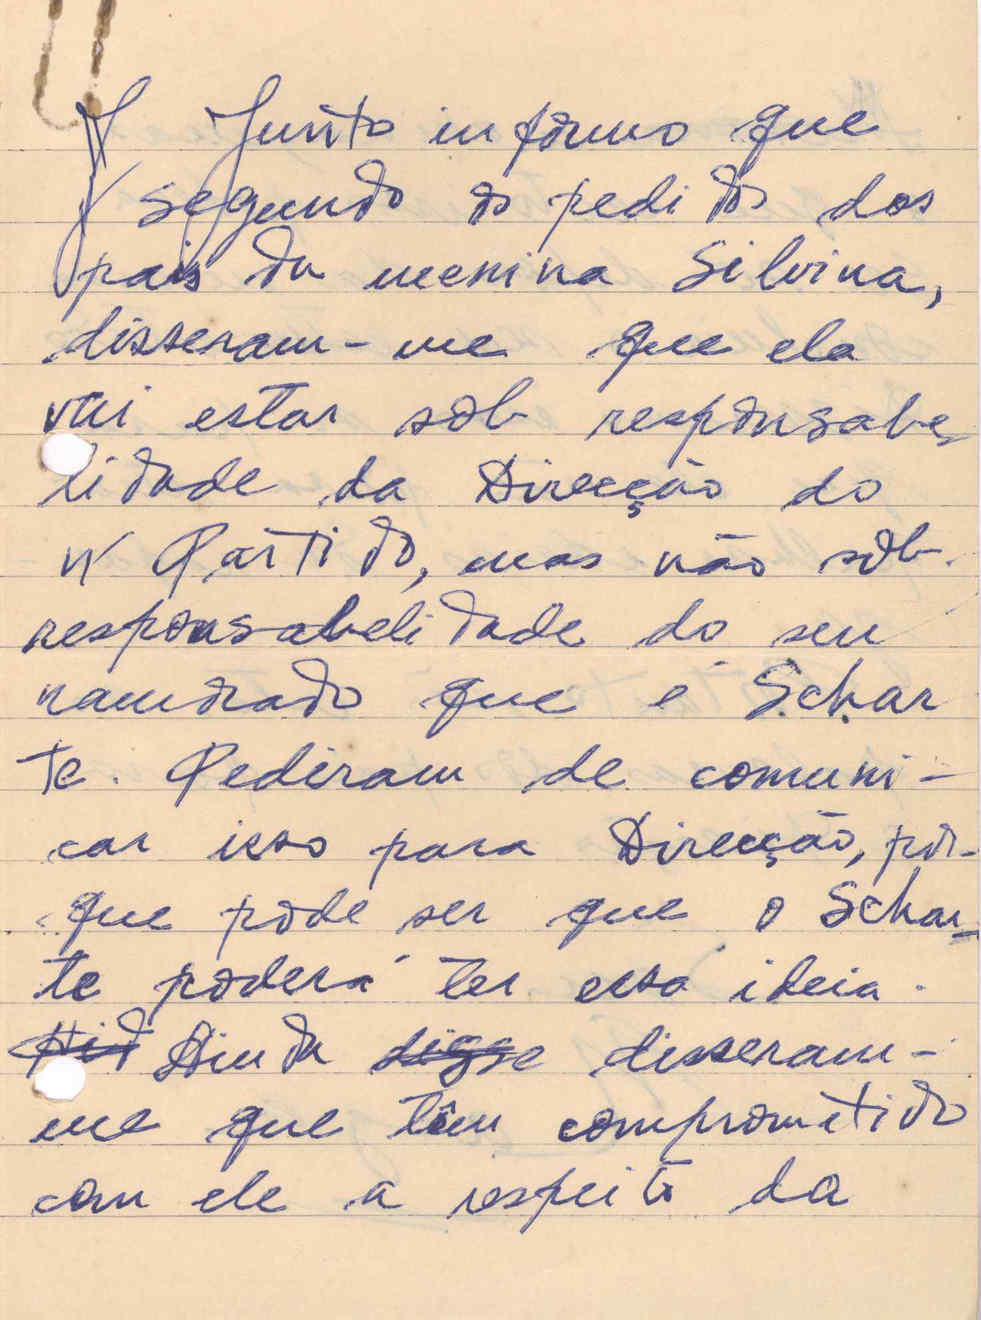 Junto informo que
segundo do pedido dos
pais da menina Silvina,
disseram-me que ela
vai estar sob responsabe
lidade da Direcção do
n/ Partido, mas não sob
responsabelidade do seu
namorado que é Schar
te. Pediram de comuni-
car isso para Direcção, por-
que pode ser que o Schar-
te poderá ter essa ideia.
Ainda disseram-
me que têm comprometido
com ele a respeito da